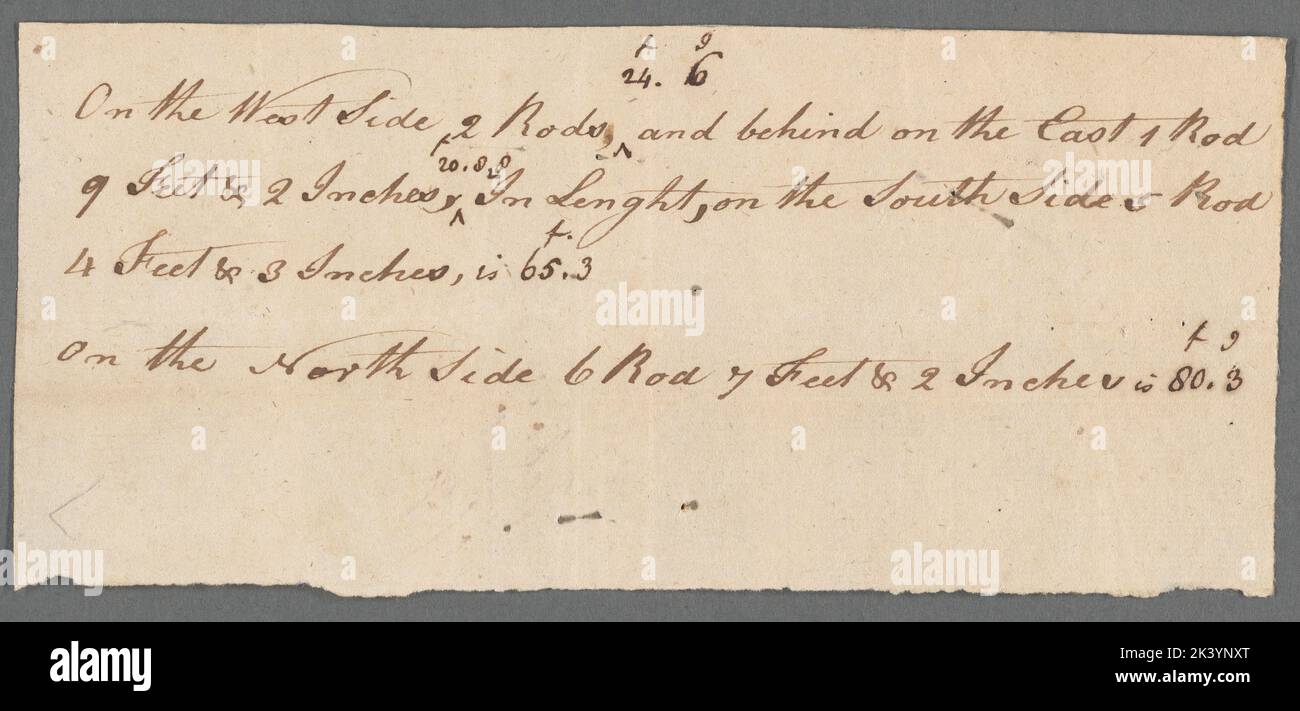 t 9
24. 6
On the West Side 2 Rods, ^ and behind on the East 1 Rod
t 20.8.9
9 Feet & 2 Inches, ^ In Lenght, on the South Side 5 Rod
t.
4 Feet & 3 Inches, is 65.3
t 9
on the North Side 6 Rod 7 Feet & 2 Inches is 80.3
a alamy
alamy
Image ID: 2K3YNXT
www.alamy.com